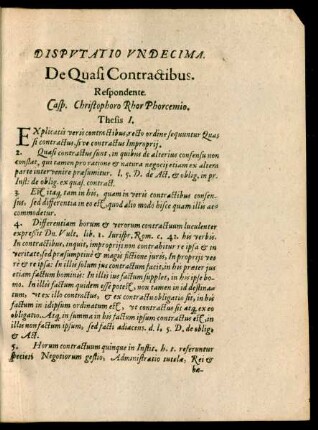 DISPVTATIO VNDECIMA.
De Quasi Contractibus.
Respondente.
Casp. Christophoro Rhor Phorcemio.
Thesis I.
EXplicatis veris contractibus recto ordine sequuntur Qua
si contractus, sive contractus Improprij.
2. Quasi contractus sunt, in quibus de alterius consensu non
constat, qui tamen pro ratione & natura negocij etiam ex altera
parte intervenire præsumitur. l. 5. D. de Act. & oblig. in pr.
Inst: de oblig. ex quas. contract.
3. Est itaq, tam in his, quam in veris contractibus consen-
sus, sed differentia in eo est, quod alio modo hisce quam illis ac-
commodetur.
4. Differentiam horum & verorum contractuum luculenter
expressit Dn. Vult. lib. 1. Iurispr. Rom. c. 42. his verbis.
In contractibus, inquit, improprijs non contrahitur re ipsa & in
veritate, sed præsumptivè & magis fictione juris, In proprijs ve-
rè & re ipsa: In illis solum jus contractum facit, in his præter jus
etiam factum hominis: In illis jus factum supplet, in hoc ipse ho-
mo. In illis factum quidem esse potest, non tamen in id destina-
tum, ut ex illo contractus, & ex contractu obligatio sit, in his
factum in id ipsum ordinatum est, ut contractus sit atq, ex eo
obligatio. Atq, in summa in his factum ipsum contractus est, in
illis non factum ipsum, sed facti adiacens. d. l. 5. D. de oblig.
& Act.
5. Horum contractuum quinque in Instit. h. t. referuntur
species Negotiorum gestio, Administratio tutelæ, Rei &
hæ-